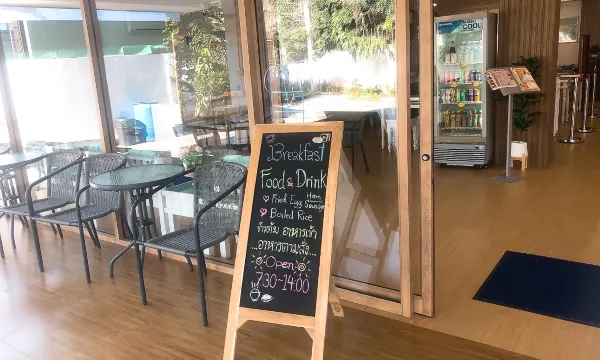 Breakfast
Food & Drink
Fried Egg Ham Sausage
Boiled Rice
ข้าวต้ม อาหารเช้า
...อาหารตามสั่ง...
Open
7.30-14.00
COOL